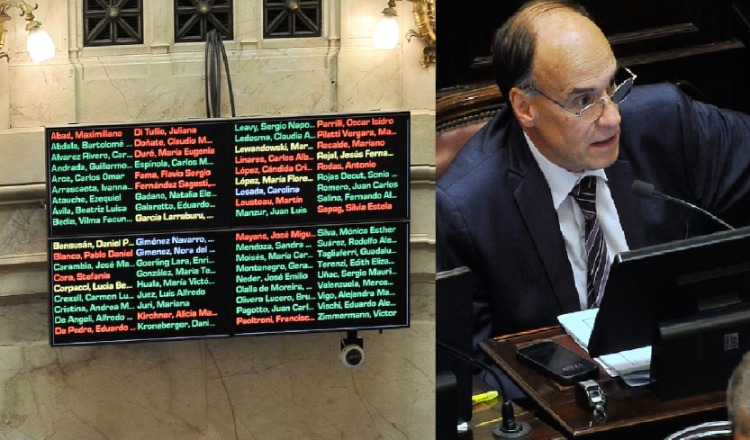 Abad, Maximiliano
Abdala, Bartolomé ...
Alvarez Rivero, Car...
Andrada, Guillermo ...
Arce, Carlos Omar
Arrascaeta, Ivanna...
Atauche, Ezequiel
Ávila, Beatriz Luisa
Bedia, Vilma Facun...
Di Tullio, Juliana
Doñate, Claudio M...
Duré, María Eugenia
Espínola, Carlos M...
Fama, Flavio Sergio
Fernández Sagasti...
Gadano, Natalia E...
Galaretto, Eduardo...
García Larraburu, ...
Leavy, Sergio Napo...
Ledesma, Claudia A...
Lewandowski, Mar...
Linares, Carlos Alb...
López, Cándida Cri...
López, María Flore...
Losada, Carolina
Lousteau, Martín
Manzur, Juan Luis
Parrilli, Oscar Isidro
Pilatti Vergara, Ma...
Recalde, Mariano
Rejal, Jesús Ferna...
Rodas, Antonio
Rojas Decut, Sonia ...
Romero, Juan Carlos
Salino, Fernando Al...
Sapag, Silvia Estela
Bensusán, Daniel P...
Blanco, Pablo Daniel
Carambia, José Ma...
Cora, Stefanía
Corpacci, Lucía Be...
Crexell, Carmen Lu...
Cristina, Andrea M...
De Angeli, Alfredo ...
De Pedro, Eduardo ...
Giménez Navarro, ...
Gimenez, Nora del ...
Goerling Lara, Enri...
González, María Te...
Huala, María Victó...
Juez, Luis Alfredo
Juri, Mariana
Kirchner, Alicia Ma...
Kroneberger, Dani...
Mayans, José Migu...
Mendoza, Sandra ...
Moisés, María Car...
Montenegro, Gera...
Neder, José Emilio
Olalla de Moreira, ...
Olivera Lucero, Bru...
Pagotto, Juan Carl...
Paoltroni, Francisc...
Silva, Mónica Esther
Suárez, Rodolfo Ale...
Tagliaferri, Guadalu...
Terenzi, Edith Eliza...
Uñac, Sergio Mauri...
Valenzuela, Merce...
Vigo, Alejandra Ma...
Vischi, Eduardo Ale...
Zimmermann, Víctor